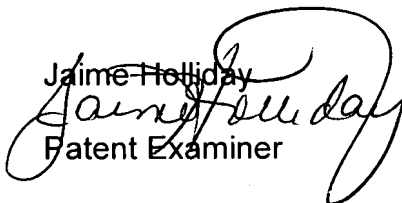 Jaime Holliday
Jaime Holliday
Patent Examiner